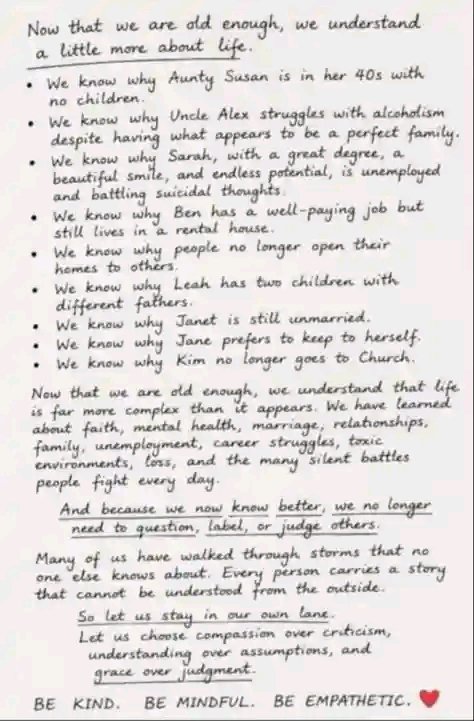 Now that we are old enough, we understand
a little more about life.
• We know why Aunty Susan is in her 40s with
no children.
• We know why Uncle Alex struggles with alcoholism
despite having what appears to be a perfect family.
• We know why Sarah, with a great degree, a
beautiful smile, and endless potential, is unemployed
and battling suicidal thoughts.
• We know why Ben has a well-paying job but
still lives in a rental house.
• We know why people no longer open their
homes to others.
• We know why Leah has two children with
different fathers.
• We know why Janet is still unmarried.
• We know why Jane prefers to keep to herself.
• We know why Kim no longer goes to Church.
Now that we are old enough, we understand that life
is far more complex than it appears. We have learned
about faith, mental health, marriage, relationships,
family, unemployment, career struggles, toxic
environments, loss, and the many silent battles
people fight every day.
And because we now know better, we no longer
need to question, label, or judge others.
Many of us have walked through storms that no
one else knows about. Every person carries a story
that cannot be understood from the outside.
So let us stay in our own lane.
Let us choose compassion over criticism,
understanding over assumptions, and
grace over judgment.
BE KIND. BE MINDFUL. BE EMPATHETIC. ❤️